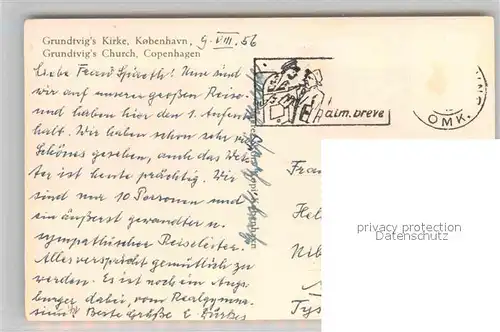 Grundtvig's Kirke, København, 9. VIII. 56
Grundtvig's Church, Copenhagen
Liebe Frau Späth! Nun sind
wir auf unserer großen Reise
und haben hier den 1. Aufent
halt. Wir haben schon sehr viel
Schönes gesehen, auch das Wet
ter ist heute prächtig. Wir
sind nur 10 Personen und
ein äußerst gewandter u.
sympathischer Reiseleiter.
Alles verspricht gemütlich zu
werden. Es ist noch ein Augs
burger dabei, vom Realgymna
sium. Beste Grüße E.
alm. breve
OMK.
Fra
Hel
Tys
privacy protection
Datenschutz